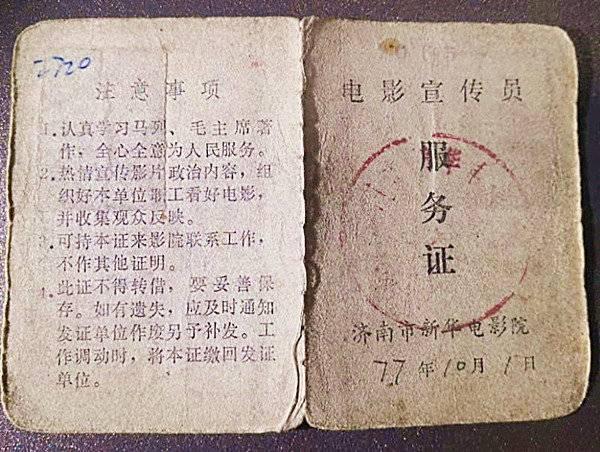 2720
注意事项
1.认真学习马列、毛主席著
作，全心全意为人民服务。
2.热情宣传影片政治内容，组
织好本单位职工看好电影，
并收集观众反映。
3.可持本证来影院联系工作，
不作其他证明。
4.此证不得转借，要妥善保
存。如有遗失，应及时通知
发证单位作废另予补发。工
作调动时，将本证缴回发证
单位。
电影宣传员
服务证
济南市新华电影院
77年10月1日